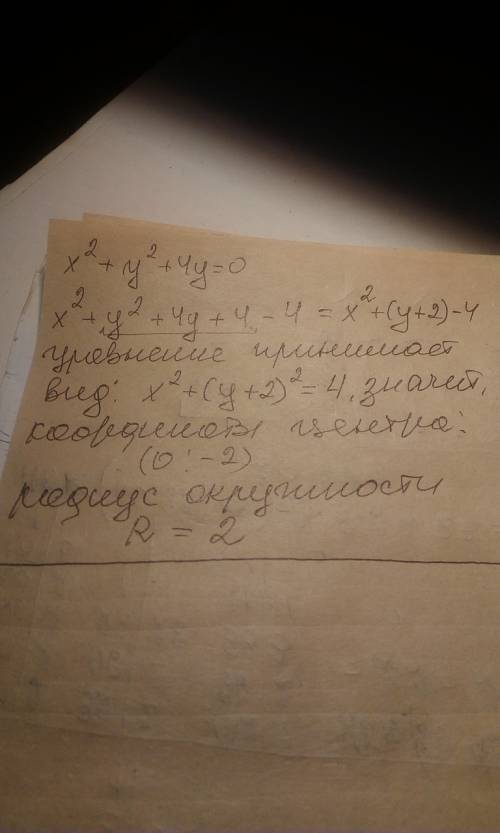 x² + y² + 4y = 0
x² + y² + 4y + 4 - 4 = x² + (y+2) - 4
уравнение принимает
вид: x² + (y+2)² = 4, значит,
координаты центра:
(0 : -2)
радиус окружности
R = 2